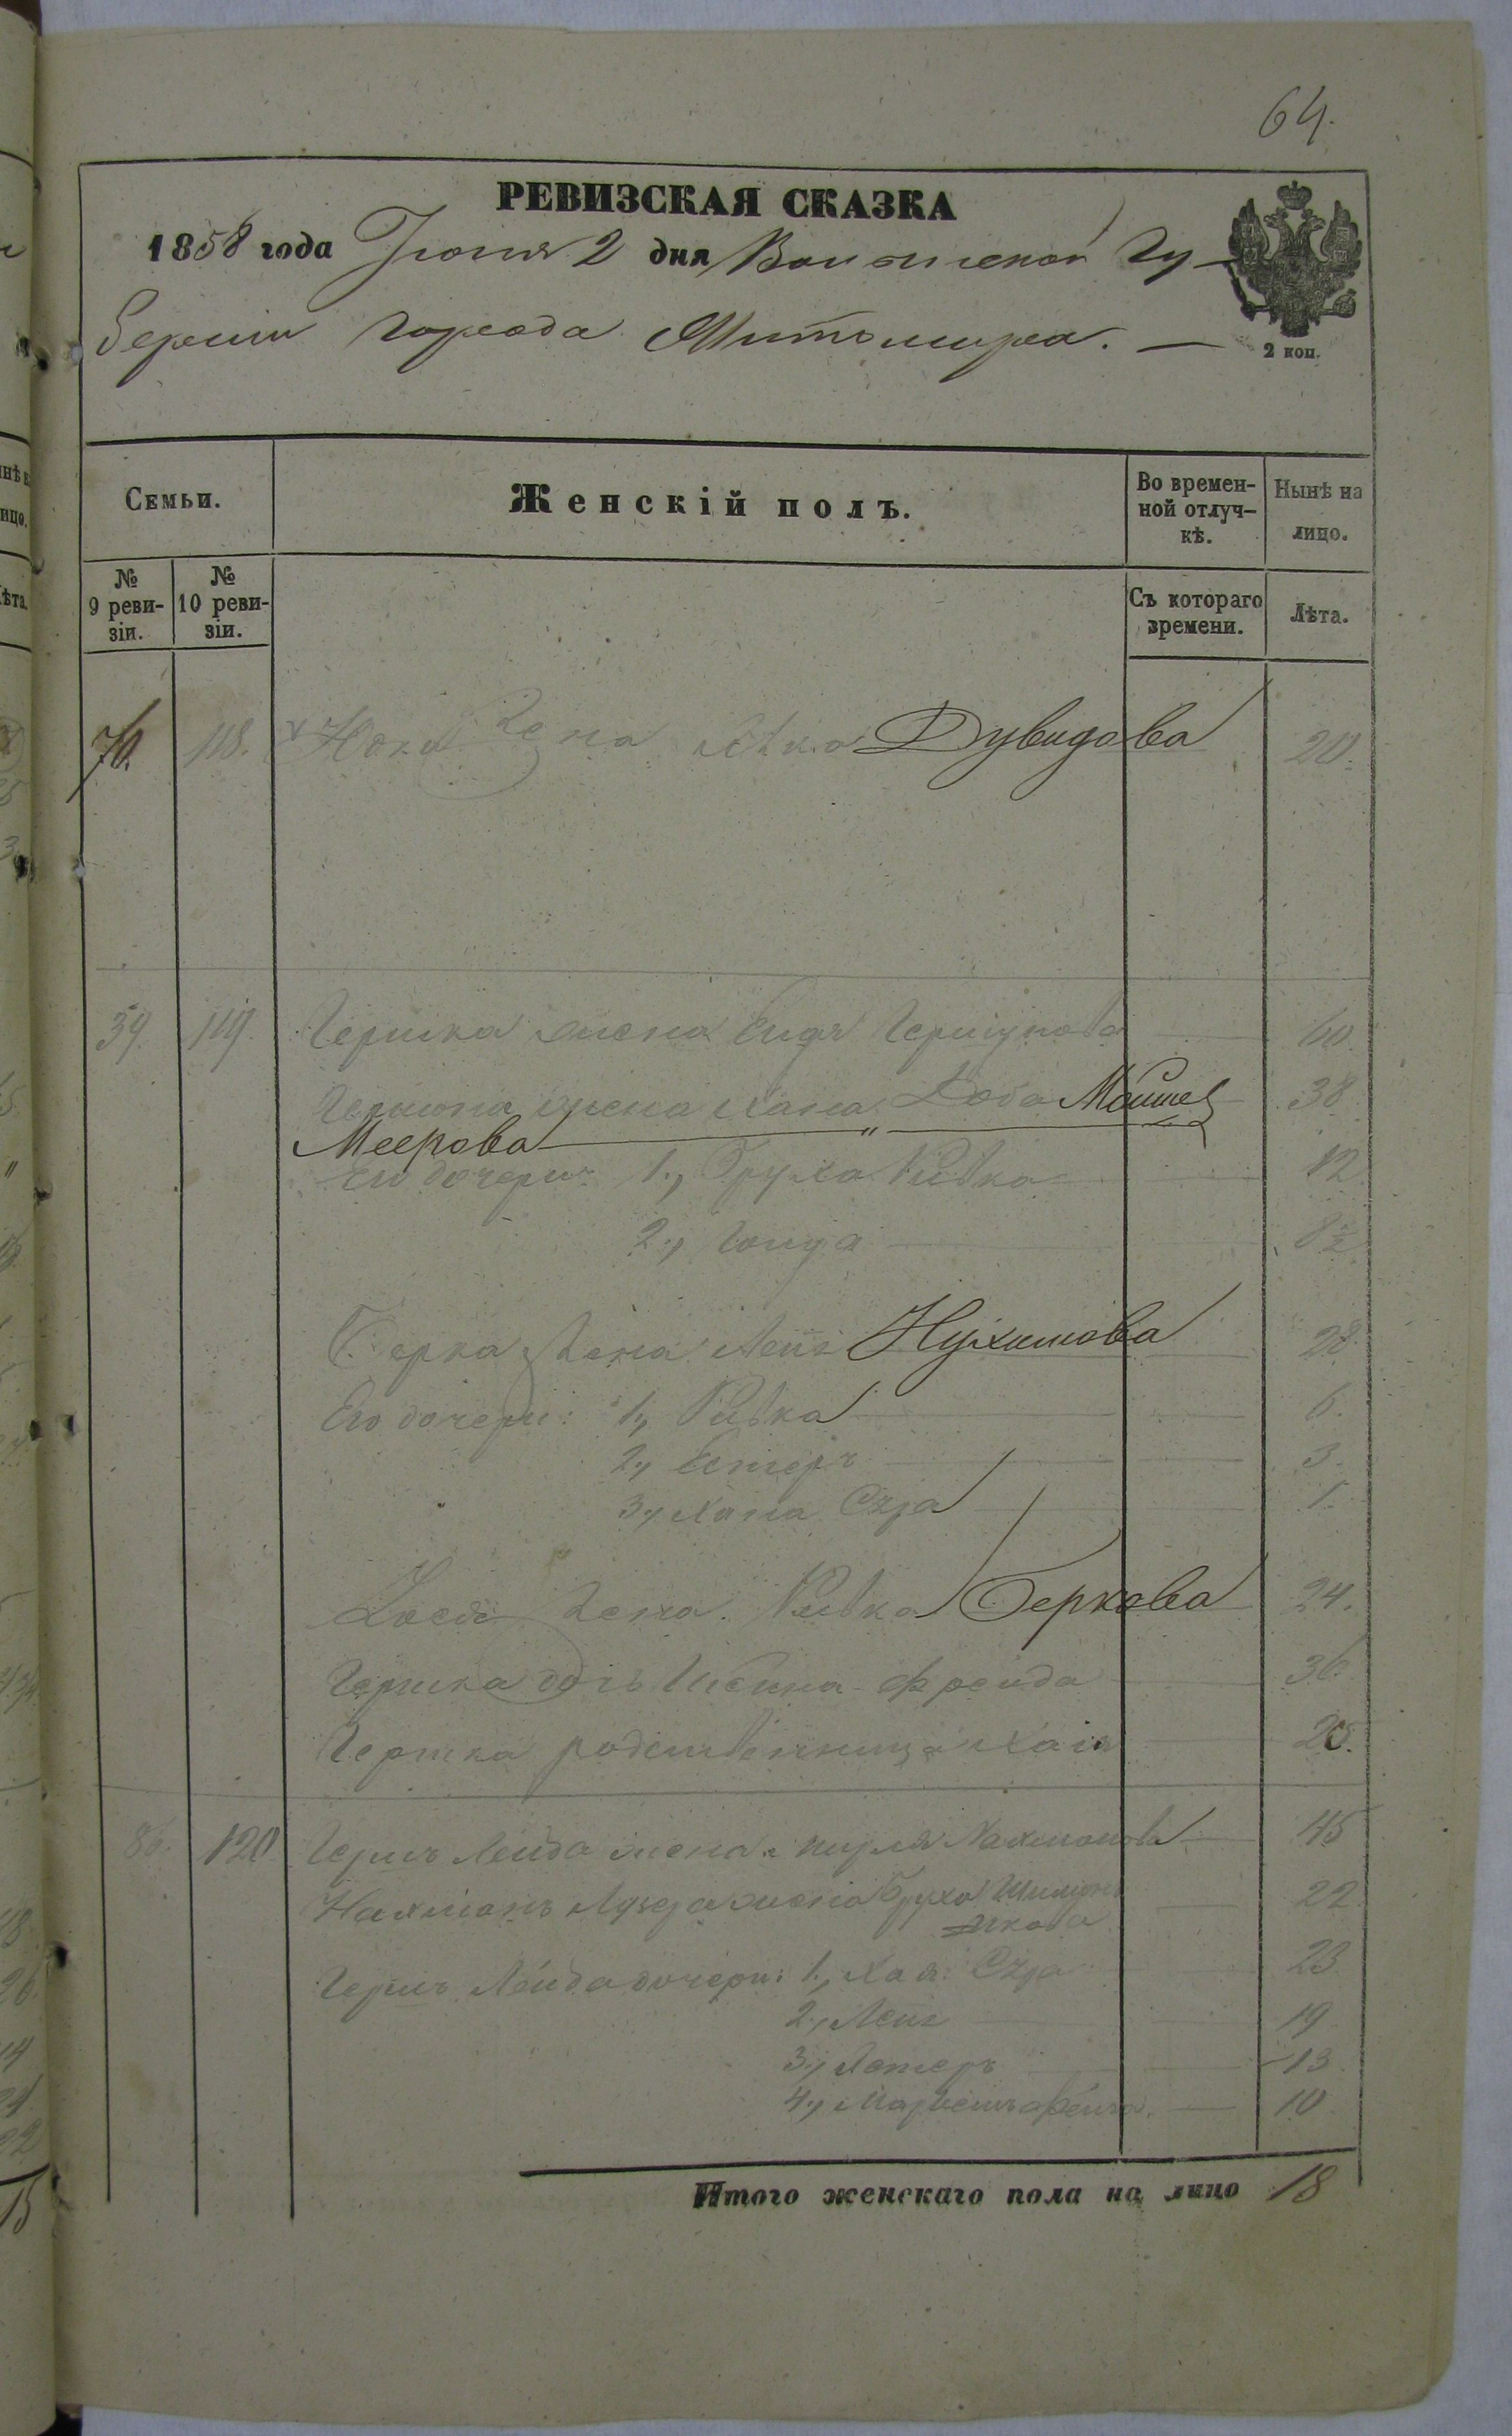 64.
РЕВИЗСКАЯ СКАЗКА
1858 года Іюня 2 дня Волынской Гу-
берніи города Житомира. —
2 коп.
Семьи.
Женскій полъ.
Во времен-
ной отлуч-
кѣ.
Нынѣ на
лицо.
№
9 реви-
зіи.
№
10 реви-
зіи.
Съ котораго
времени.
Лѣта.
76. 118. жена Дувидова 20.
59. 119. Гершка жена Гершкова 60.
жена Хана Доба Мошко 38.
Меерова
Его дочери 1., Груха Ривка 12.
2., 8½
Берка жена Лея Нухимова 28.
Его дочери: 1, Ривка 6.
2, Естеръ 3.
3, Хана Сура 1.
жена Ривка Беркова 24.
Гершка дочь Шейна-Фрейда 36.
Гершка родственница Хая 20.
86. 120 Гершъ Лейба жена Перля Нахманова 45
Нахманъ жена Бруха 22
Гершъ Лейба дочери: 1., Хая Сура 23
2., Лея 19.
3., Естеръ 13.
4., 10
Итого женскаго пола на лицо 18